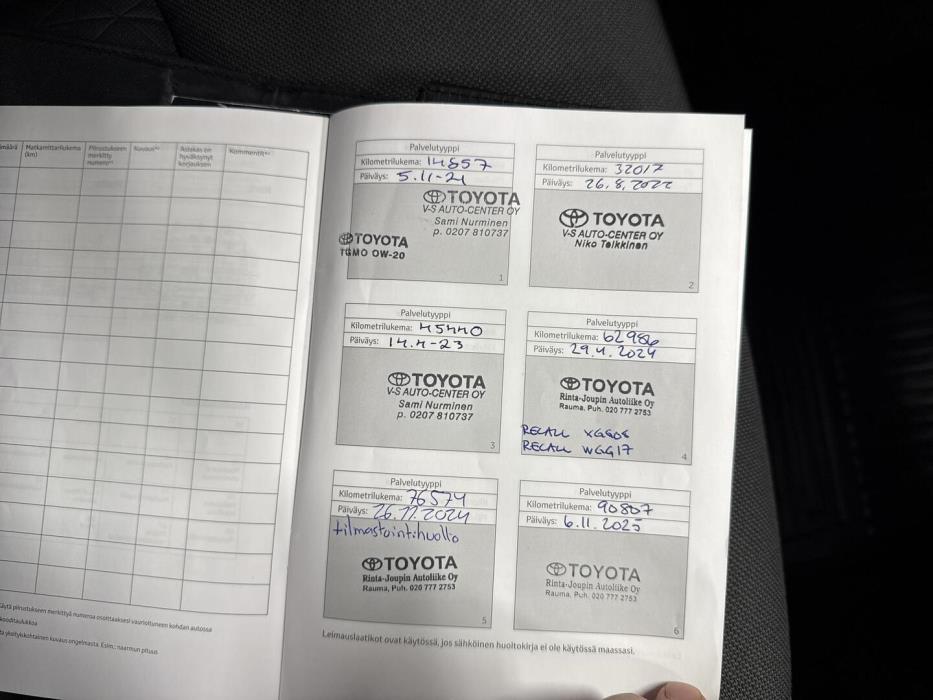 Matkamittarilukema
(km)
Piirustukseen
merkitty
Kuvaus
hyväksynyt
korjauksen
Kommentit
Palvelutyyppi
Kilometrilukema: 14857
Päiväys: 5.11-21
TOYOTA
V-S AUTO-CENTER OY
Sami Nurminen
p. 0207 810737
TOYOTA
TGMO 0W-20
1
Palvelutyyppi
Kilometrilukema: 32017
Päiväys: 26.8.2022
TOYOTA
V-S AUTO-CENTER OY
Niko Toikkinen
2
Palvelutyyppi
Kilometrilukema: 45440
Päiväys: 14.4-23
TOYOTA
V-S AUTO-CENTER OY
Sami Nurminen
p. 0207 810737
3
Palvelutyyppi
Kilometrilukema: 62986
Päiväys: 29.4.2024
TOYOTA
Rinta-Joupin Autoliike Oy
Rauma, Puh. 020 777 2753
RECALL
RECALL WGG17
4
Palvelutyyppi
Kilometrilukema: 76574
Päiväys: 26.11.2024
ilmastointihuolto
TOYOTA
Rinta-Joupin Autoliike Oy
Rauma, Puh. 020 777 2753
5
Palvelutyyppi
Kilometrilukema: 90807
Päiväys: 6.11.2025
TOYOTA
Rinta-Joupin Autoliike Oy
Rauma, Puh. 020 777 2753
6
Leimauslaatikot ovat käytössä, jos sähköinen huoltokirja ei ole käytössä maassasi.
piirustukseen merkittyä numeroa osoittaaksesi vaurioituneen kohdan autossa
yksityiskohtainen kuvaus ongelmasta. Esim.: naarmun pituus